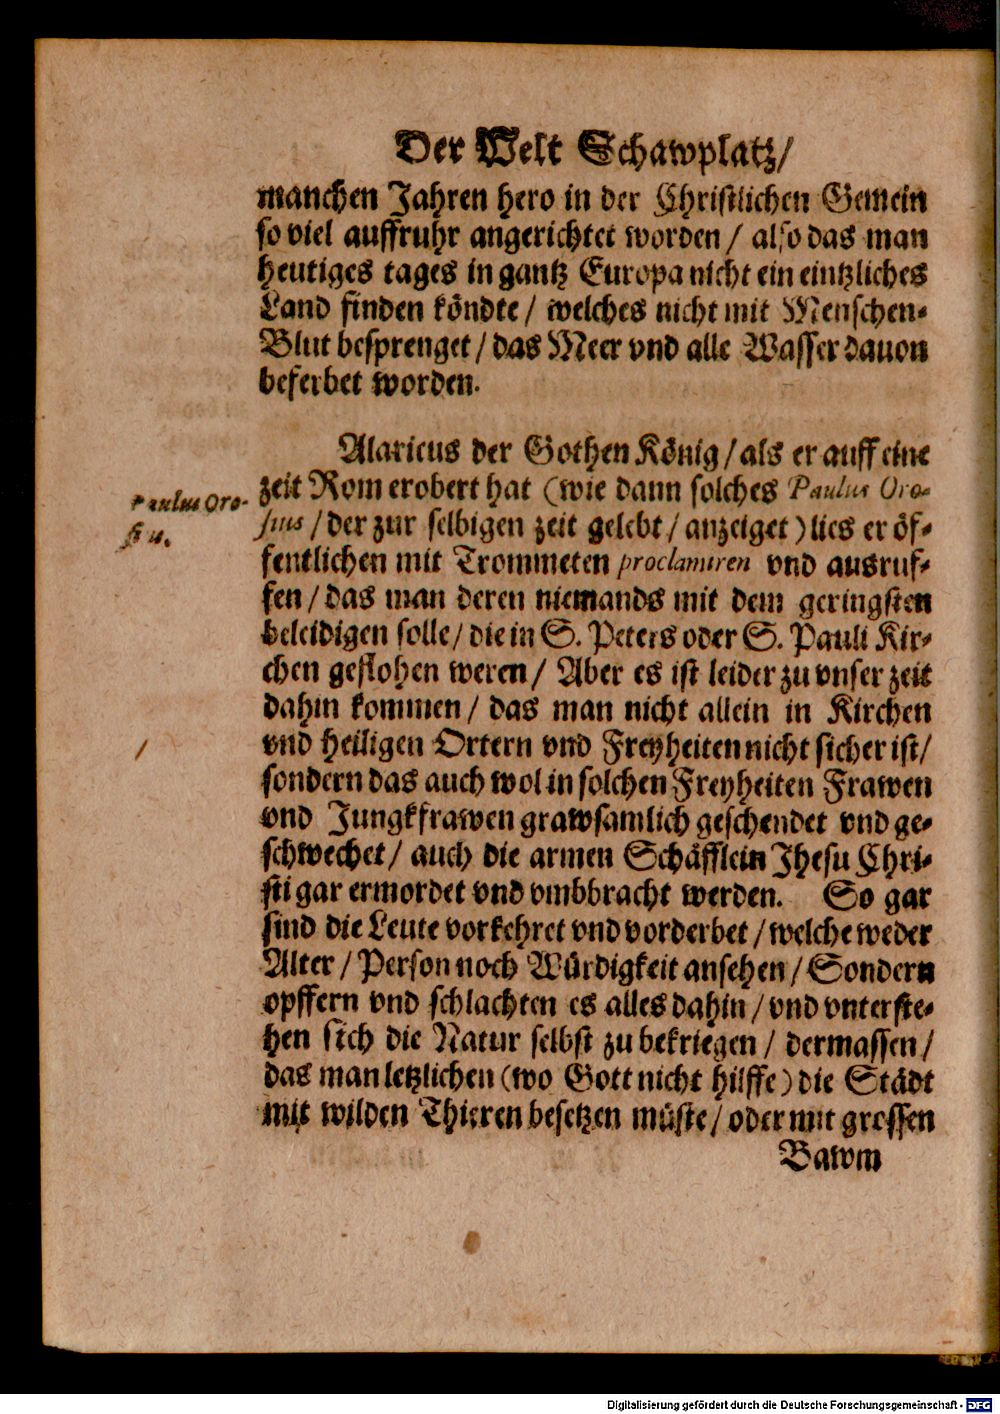 Der Welt Schawplatz/
manchen Jahren hero in der Christlichen Gemein
so viel auffruhr angerichtet worden / also das man
heutiges tages in gantz Europa nicht ein eintzliches
Land finden köndte / welches nicht mit Menschen-
Blut besprenget / das Meer vnd alle Wasser dauon
beferbet worden.
Alaricus der Gothen König / als er auff eine
zeit Rom erobert hat (wie dann solches Paulus Oro-
Paulus Oro-
sius.
sius / der zur selbigen zeit gelebt / anzeiget) lies er öf-
fentlichen mit Trommeten proclamiren vnd ausruf-
fen / das man deren niemands mit dem geringsten
beleidigen solle / die in S. Peters oder S. Pauli Kir-
chen geflohen weren / Aber es ist leider zu vnser zeit
dahin kommen / das man nicht allein in Kirchen
vnd heiligen Ortern vnd Freyheiten nicht sicher ist /
sondern das auch wol in solchen Freyheiten Frawen
vnd Jungkfrawen grawsamlich geschendet vnd ge-
schwechet / auch die armen Schäfflein Jhesu Chri-
sti gar ermordet vnd vmbbracht werden. So gar
sind die Leute vorkehret vnd vorderbet / welche weder
Alter / Person noch Würdigkeit ansehen / Sondern
opffern vnd schlachten es alles dahin / vnd vnterste-
hen sich die Natur selbst zu bekriegen / dermassen /
das man letzlichen (wo Gott nicht hilffe) die Städt
mit wilden Thieren besetzen müste / oder mit grossen
Bawm
Digitalisierung gefördert durch die Deutsche Forschungsgemeinschaft - DFG